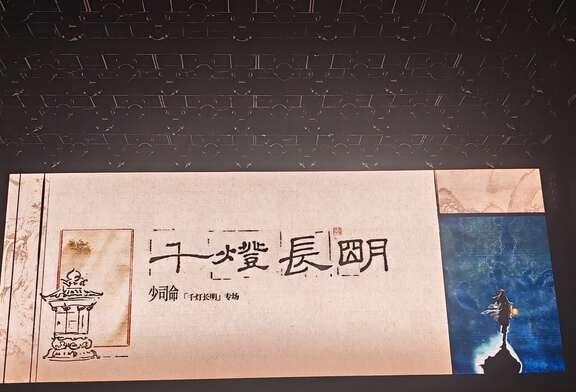 千燈長明
少司命「千灯长明」专场